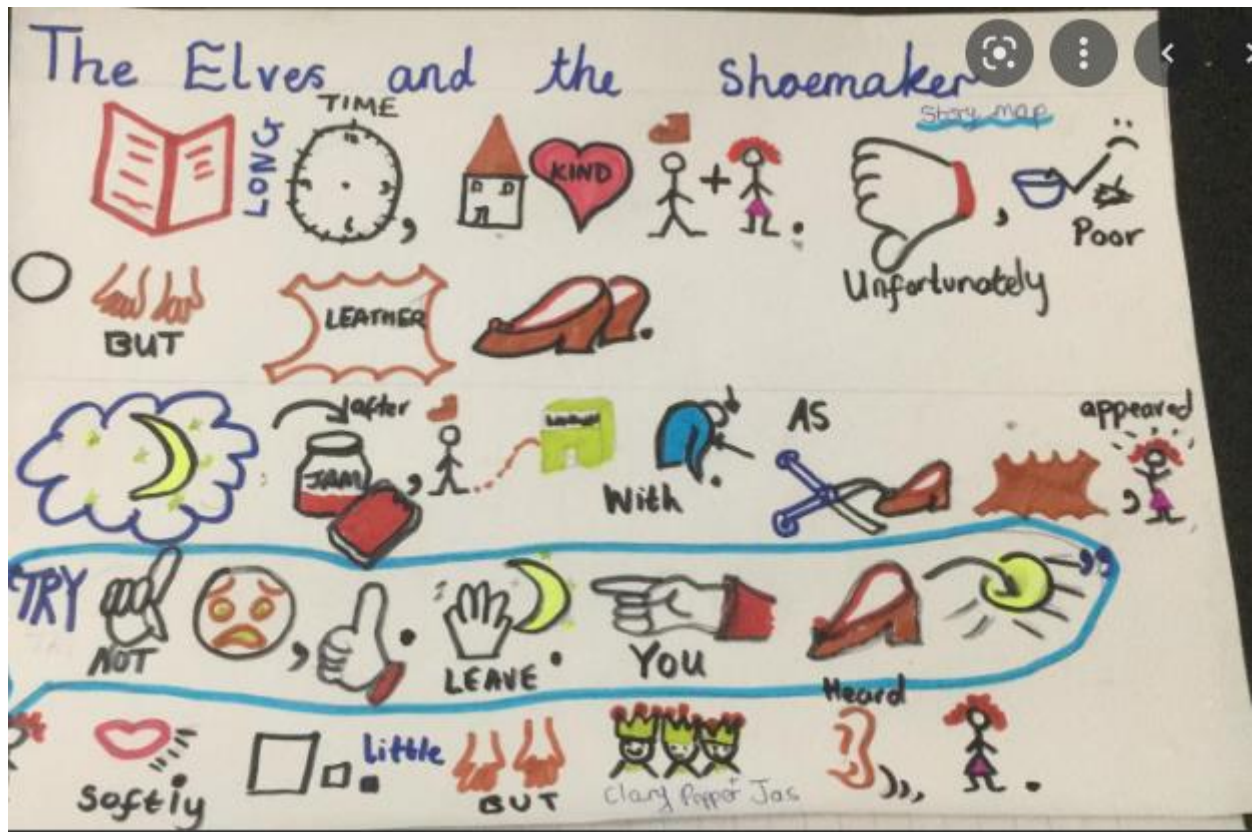 The Elves and the Shoemaker
Story map
LONG TIME
KIND
Unfortunately
Poor
BUT
LEATHER
after
JAM
With
AS
appeared
TRY
NOT
LEAVE
YOU
Heard
Softly
Little
BUT
Clary Pepper Jas